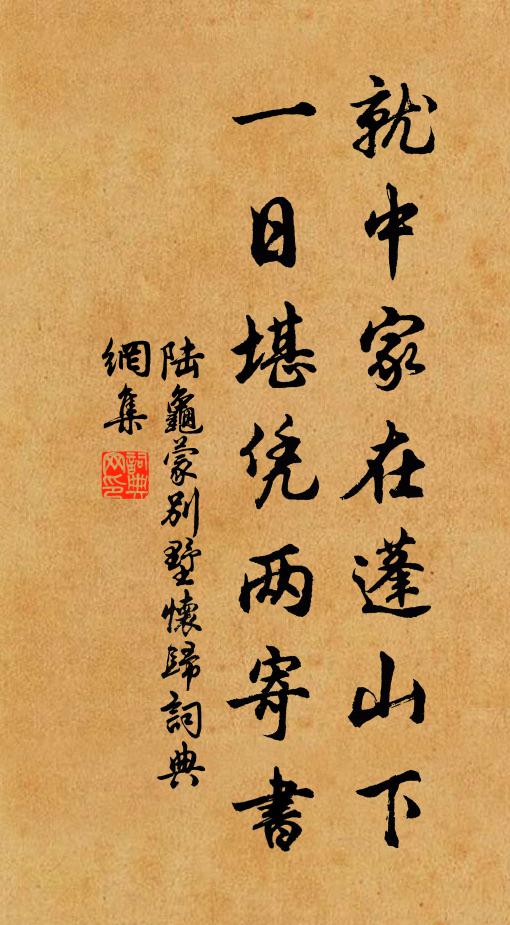 就中家在蓬山下
一日堪凭两寄書
陆龜蒙別墅懷歸詞典
網集
詞典
网印